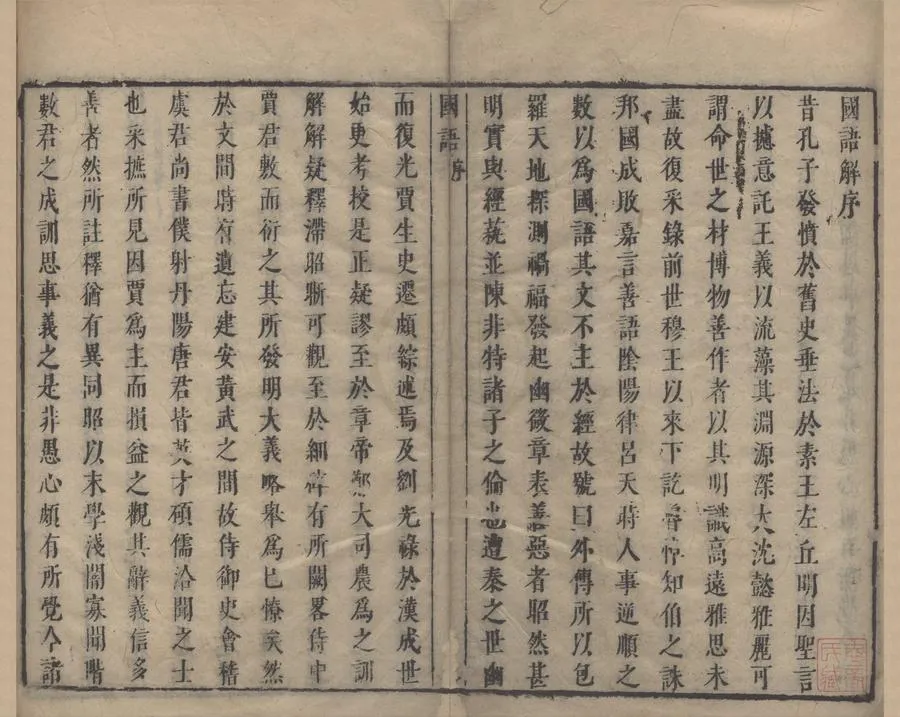 國語解序
昔孔子發憤於舊史垂法於素王左丘明因聖言
以攄意託王義以流藻其淵源深大沈懿雅麗可
謂命世之材博物善作者以其明識高遠雅思未
盡故復采錄前世穆王以來下訖魯悼知伯之誅
邦國成敗嘉言善語陰陽律呂天時人事逆順之
數以爲國語其文不主於經故號曰外傳所以包
羅天地探測禍福發起幽微章表善惡者昭然甚
明實與經蓺並陳非特諸子之倫也遭秦之世幽
國語序
而復光賈生史遷頗綜述焉及劉光祿於漢成世
始更考校是正疑謬至於章帝鄭大司農爲之訓
解解疑釋滯昭晰可觀至於細碎有所闕畧侍中
賈君敷而衍之其所發明大義略舉爲已憭矣然
於文間時有遺忘建安黃武之間故侍御史會稽
虞君尚書僕射丹陽唐君皆英才碩儒洽聞之士
也采摭所見因賈爲主而損益之觀其辭義信多
善者然所註釋猶有異同昭以末學淺闇寡聞階
數君之成訓思事義之是非愚心頗有所覺今諸